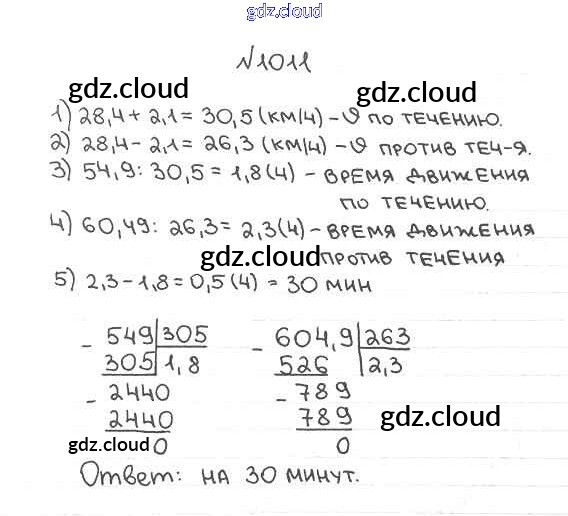 gdz.cloud
№1011
gdz.cloud
1) 28,4 + 2,1 = 30,5 (км/ч) - ϑ по течению.
2) 28,4 - 2,1 = 26,3 (км/ч) - ϑ против теч-я.
3) 54,9 : 30,5 = 1,8 (ч) - время движения
по течению.
4) 60,49 : 26,3 = 2,3 (ч) - время движения
gdz.cloud против течения
5) 2,3 - 1,8 = 0,5 (ч) = 30 мин
- 549 | 305
305 | 1,8
- 2440
2440
0
- 604,9 | 263
526 | 2,3
- 789
789
0
gdz.cloud
gdz.cloud
Ответ: на 30 минут.